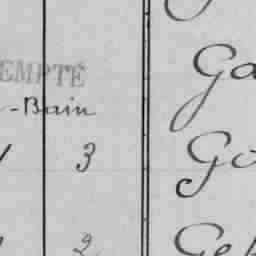 EMPTÉ Ga
-Bain
1 3 Go
2 Gel